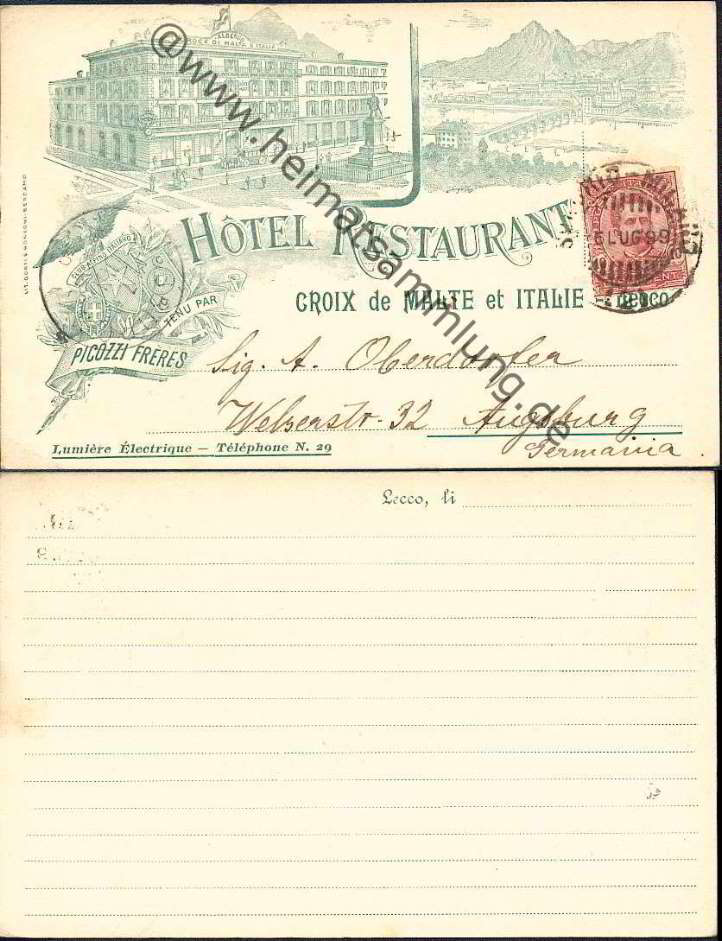 ALBERGO
CROCE DI MALTA E ITALIA
@www.heimatsammlung.de
HÔTEL RESTAURANT
6 LUG 99
CLUB ALPINO ITALIANO
CROIX de MALTE et ITALIE - Lecco.
TENU PAR
PICOZZI FRÈRES
Sig. A. Oberdorfer
Welserstr. 32 Augsburg
Germania.
Lumière Électrique — Téléphone N. 29
Lecco, li